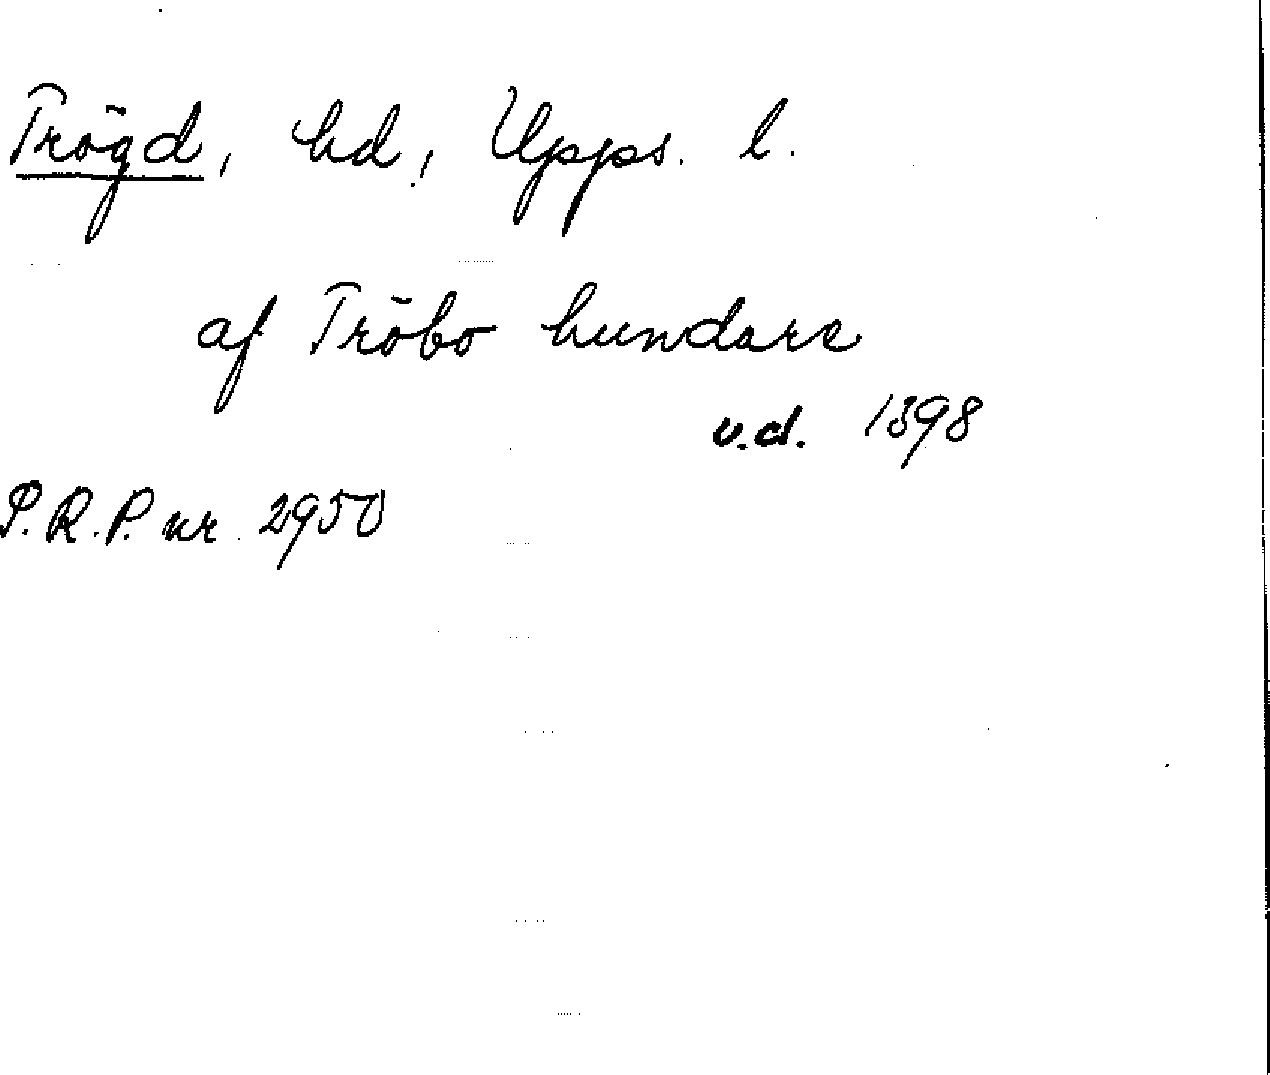 Trögd, hd, Upps. l.
af Tröbo hundare
u.d. 1398
P.R.P. nr. 2950